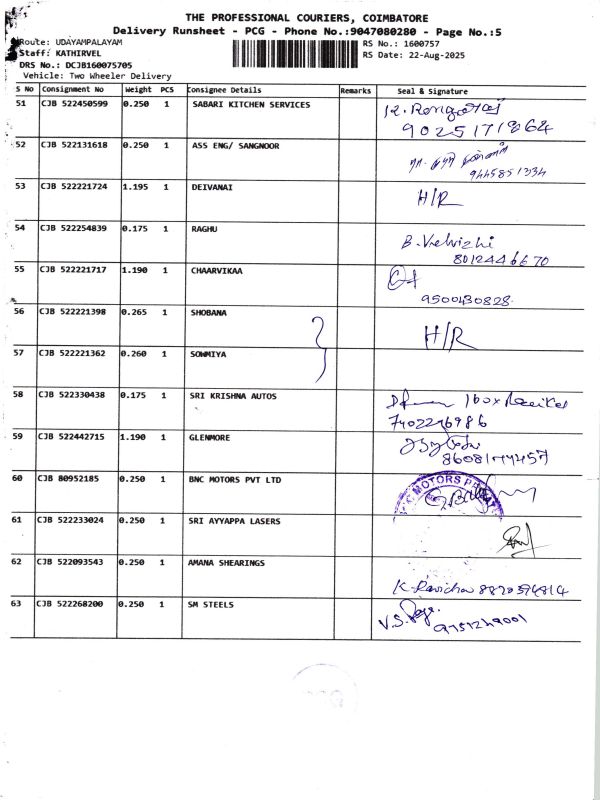 THE PROFESSIONAL COURIERS, COIMBATORE
Delivery Runsheet - PCG - Phone No.:9047080280 - Page No.:5
Route: UDAYAMPALAYAM
RS No.: 1600757
Staff: KATHIRVEL
RS Date: 22-Aug-2025
DRS No.: DCJB160075705
Vehicle: Two Wheeler Delivery
S No Consignment No Weight PCS Consignee Details Remarks Seal & Signature
51 CJB 522450599 0.250 1 SABARI KITCHEN SERVICES
9025171864
52 CJB 522131618 0.250 1 ASS ENG/ SANGNOOR
9445851334
53 CJB 522221724 1.195 1 DEIVANAI H/R
54 CJB 522254839 0.175 1 RAGHU
8012446670
55 CJB 522221717 1.190 1 CHAARVIKAA
9500430828
56 CJB 522221398 0.265 1 SHOBANA
H/R
57 CJB 522221362 0.260 1 SOWMIYA
58 CJB 522330438 0.175 1 SRI KRISHNA AUTOS
59 CJB 522442715 1.190 1 GLENMORE
60 CJB 80952185 0.250 1 BNC MOTORS PVT LTD
MOTORS
61 CJB 522233024 0.250 1 SRI AYYAPPA LASERS
62 CJB 522093543 0.250 1 AMANA SHEARINGS
63 CJB 522268200 0.250 1 SM STEELS
V.S.